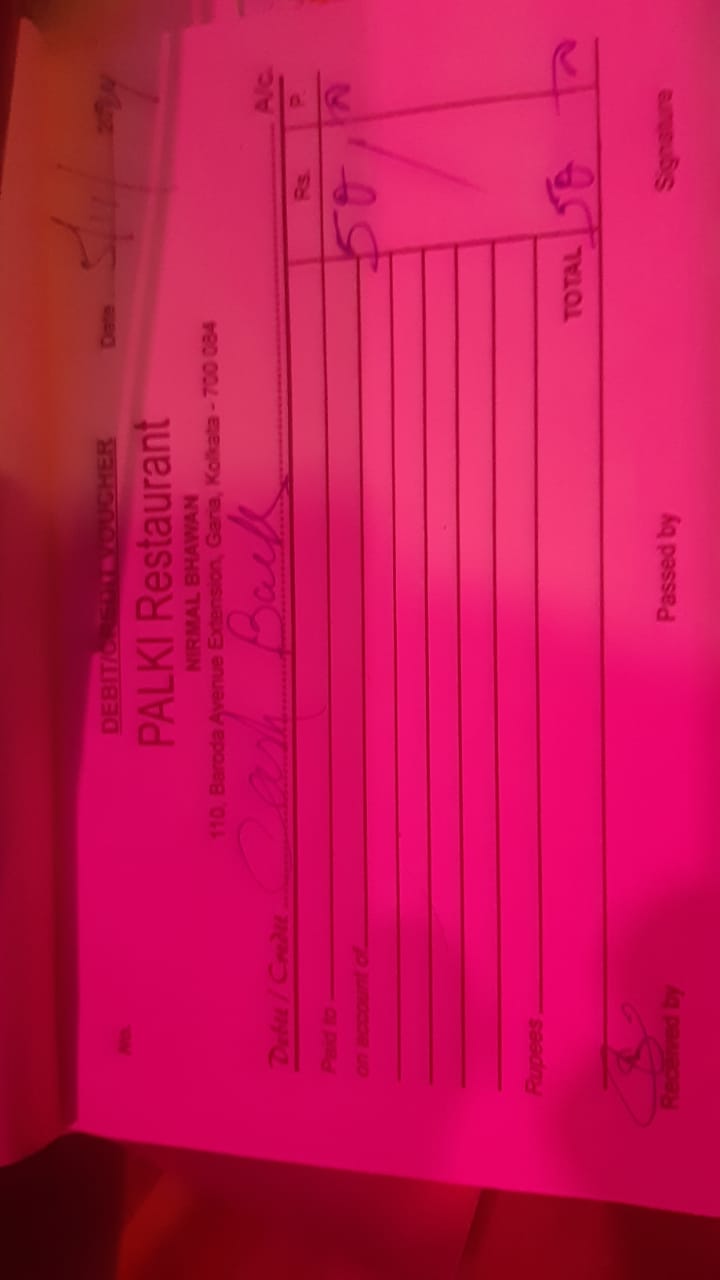 DEBIT/CREDIT VOUCHER
No. Date 5/11/2024
PALKI Restaurant
NIRMAL BHAWAN
110, Baroda Avenue Extension, Garia, Kolkata - 700 084
Debit / Credit Cash Back A/c.
Rs. P.
Paid to 50
on account of
Rupees TOTAL 50
Received by Passed by Signature